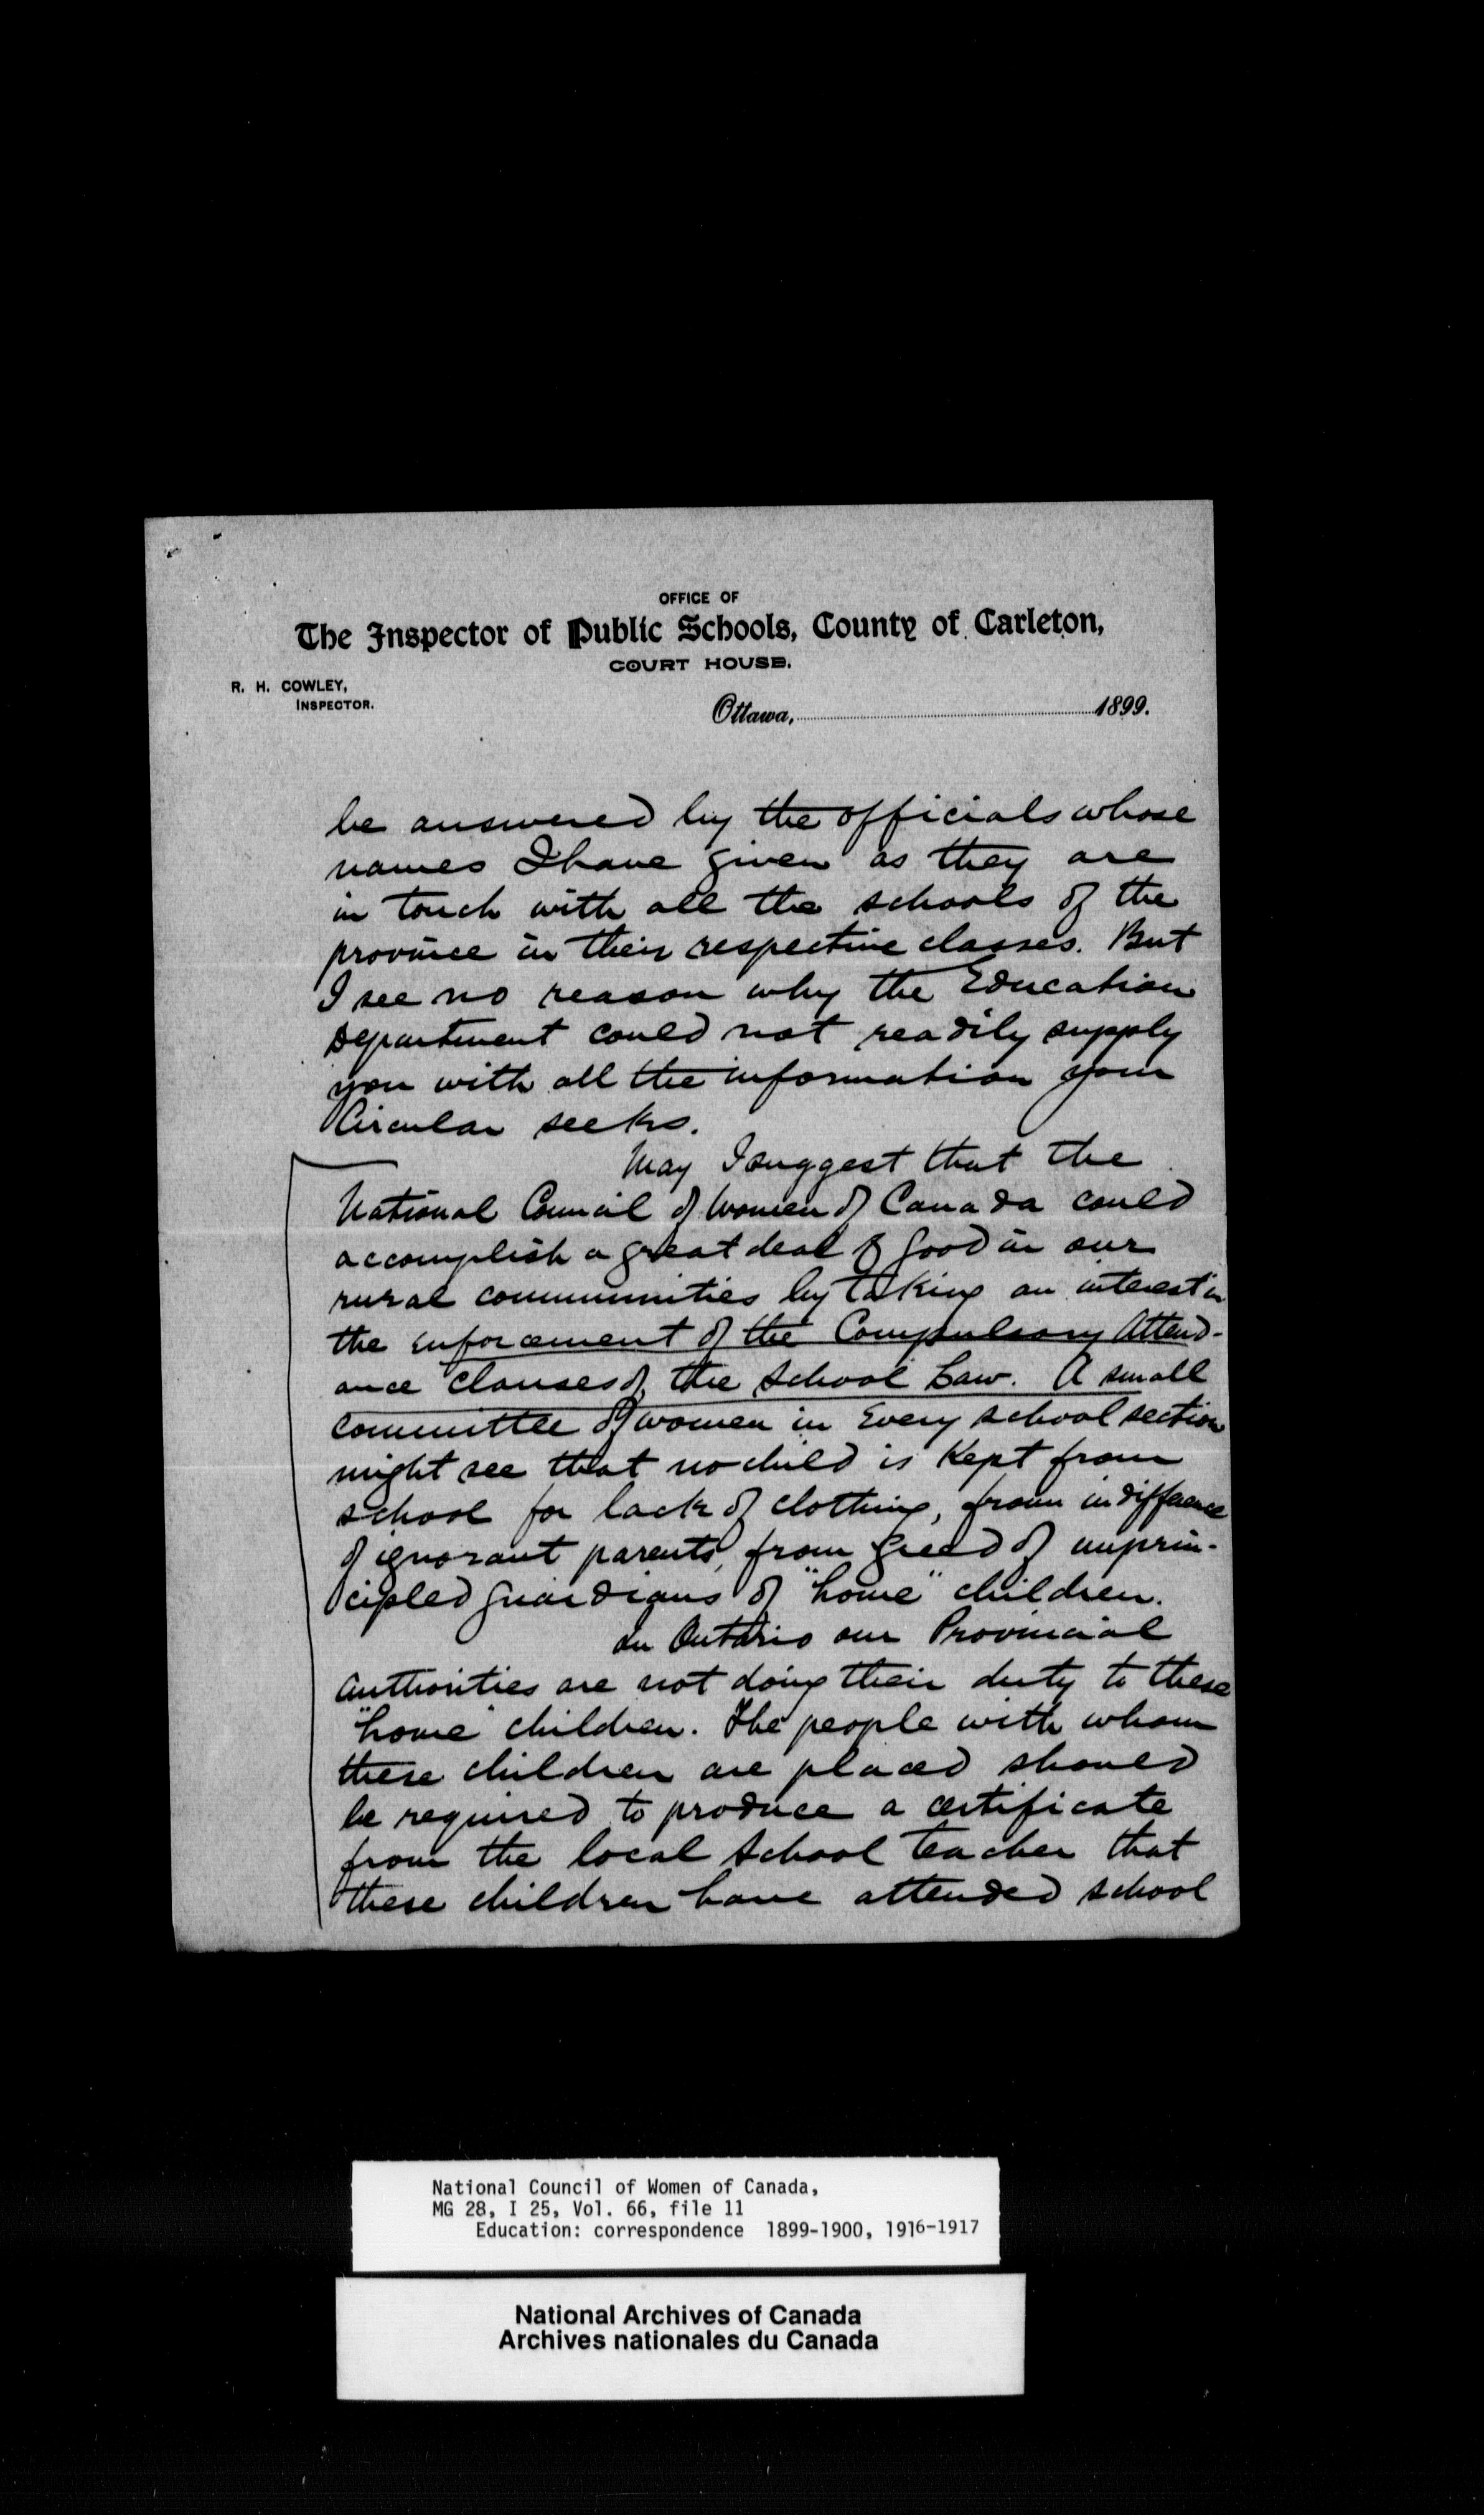 OFFICE OF
The Inspector of Public Schools, County of Carleton,
COURT HOUSE.
R. H. COWLEY,
INSPECTOR.
Ottawa, 1899.
be answered by the officials whose
names I have given as they are
in touch with all the schools of the
province in their respective classes. But
I see no reason why the Education
Department could not readily supply
you with all the information your
Circular seeks.
May I suggest that the
National Council of Women of Canada could
accomplish a great deal of good in our
rural communities by taking an interest in
the enforcement of the Compulsory Attend-
ance Clauses of the School Law. A small
committee of women in every school section
might see that no child is kept from
school for lack of clothing, from indifference
of ignorant parents, from greed of unprin-
cipled guardians of "home" children.
In Ontario our Provincial
authorities are not doing their duty to these
"home" children. The people with whom
these children are placed should
be required to produce a certificate
from the local school teacher that
these children have attended school
National Council of Women of Canada,
MG 28, I 25, Vol. 66, file 11
Education: correspondence 1899-1900, 1916-1917
National Archives of Canada
Archives nationales du Canada